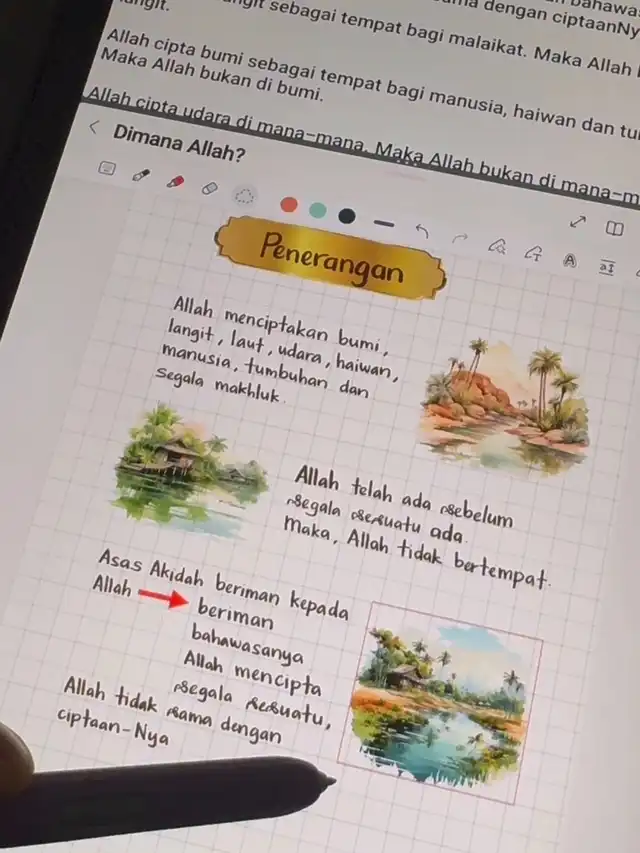 langit.
langit sebagai tempat bagi malaikat. Maka Allah
dengan ciptaanNy
Allah cipta bumi sebagai tempat bagi manusia, haiwan dan tu
Maka Allah bukan di bumi.
Allah cipta udara di mana-mana. Maka Allah bukan di mana-m
Dimana Allah?
Penerangan
Allah menciptakan bumi,
langit, laut, udara, haiwan,
manusia, tumbuhan dan
segala makhluk.
Allah telah ada sebelum
segala sesuatu ada.
Maka, Allah tidak bertempat.
Asas Akidah beriman kepada
Allah
beriman
bahawasanya
Allah mencipta
segala sesuatu,
Allah tidak sama dengan
ciptaan-Nya